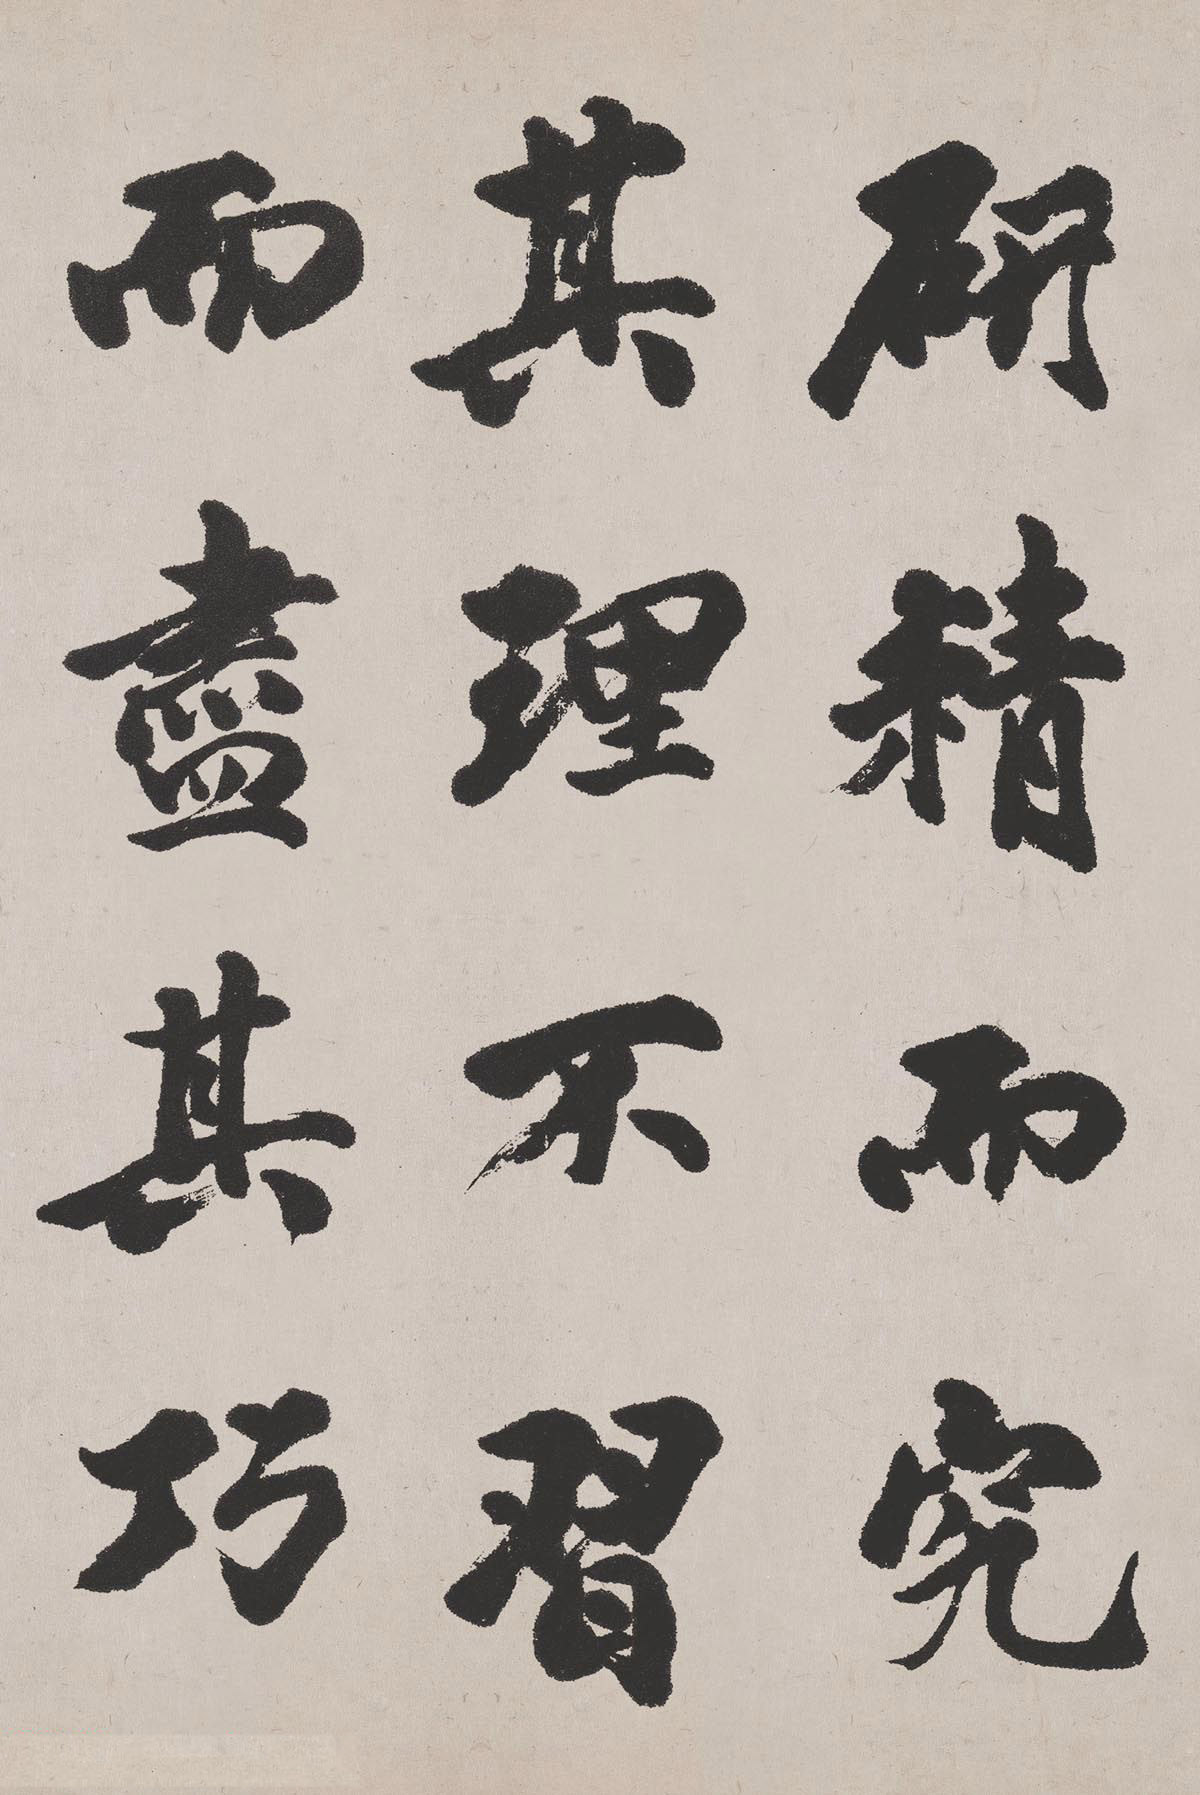 研精而究
其理不習
而盡其巧